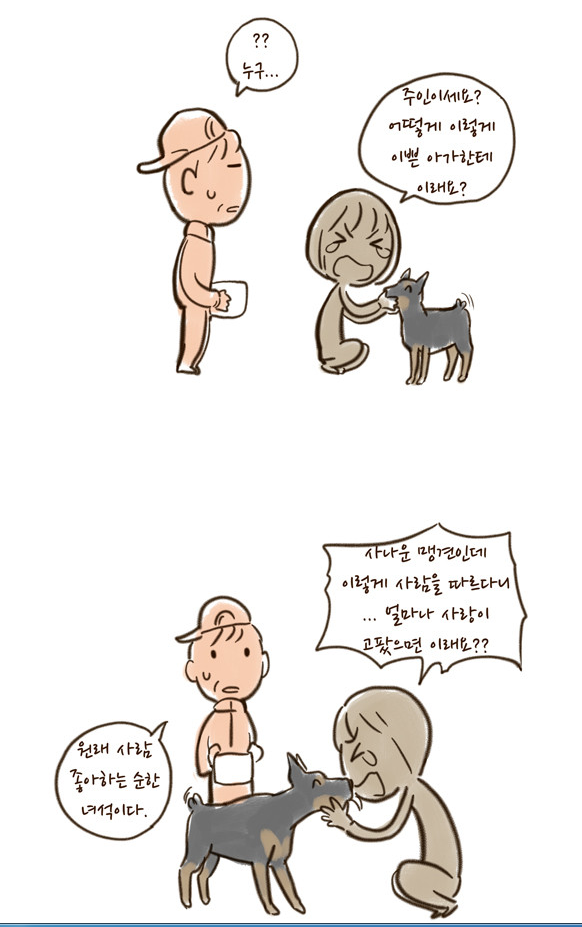 ??
누구...
주인이세요?
어떻게 이렇게
이쁜 아가한테
이래요?
사나운 맹견인데
이렇게 사람을 따르다니
... 얼마나 사랑이
고팠으면 이래요??
원래 사람
좋아하는 순한
녀석이다.